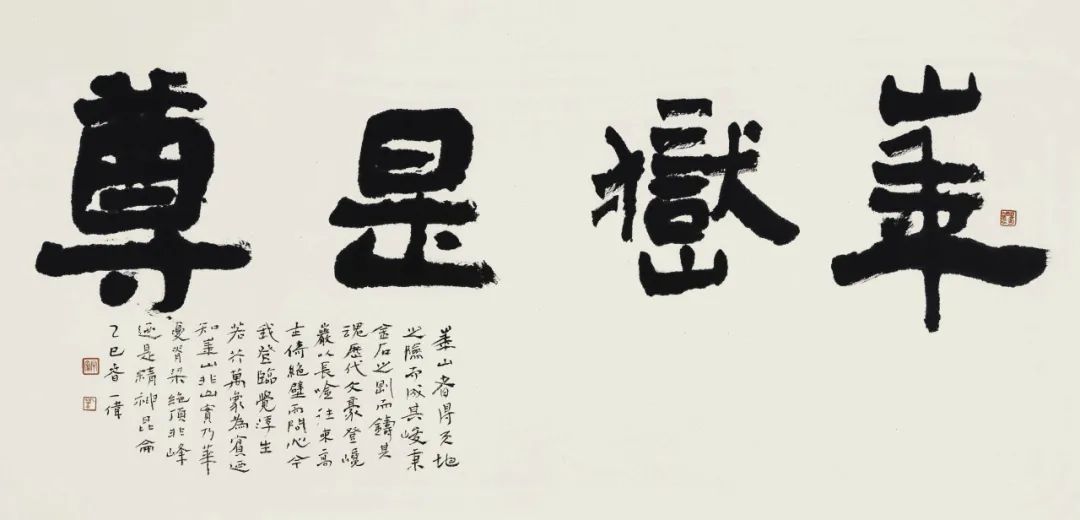 崋嶽是尊
崋山者得天地
之險而成其峻秉
金石之剛而鑄其
魂歷代文豪登嶢
巖以長吟往來高
士倚絕壁而問心今
我登臨覺浮生
若芥萬象為賓迺
知崋山非山實乃華
夏脊梁絕頂非峰
迺是精神昆侖
乙巳春一偉